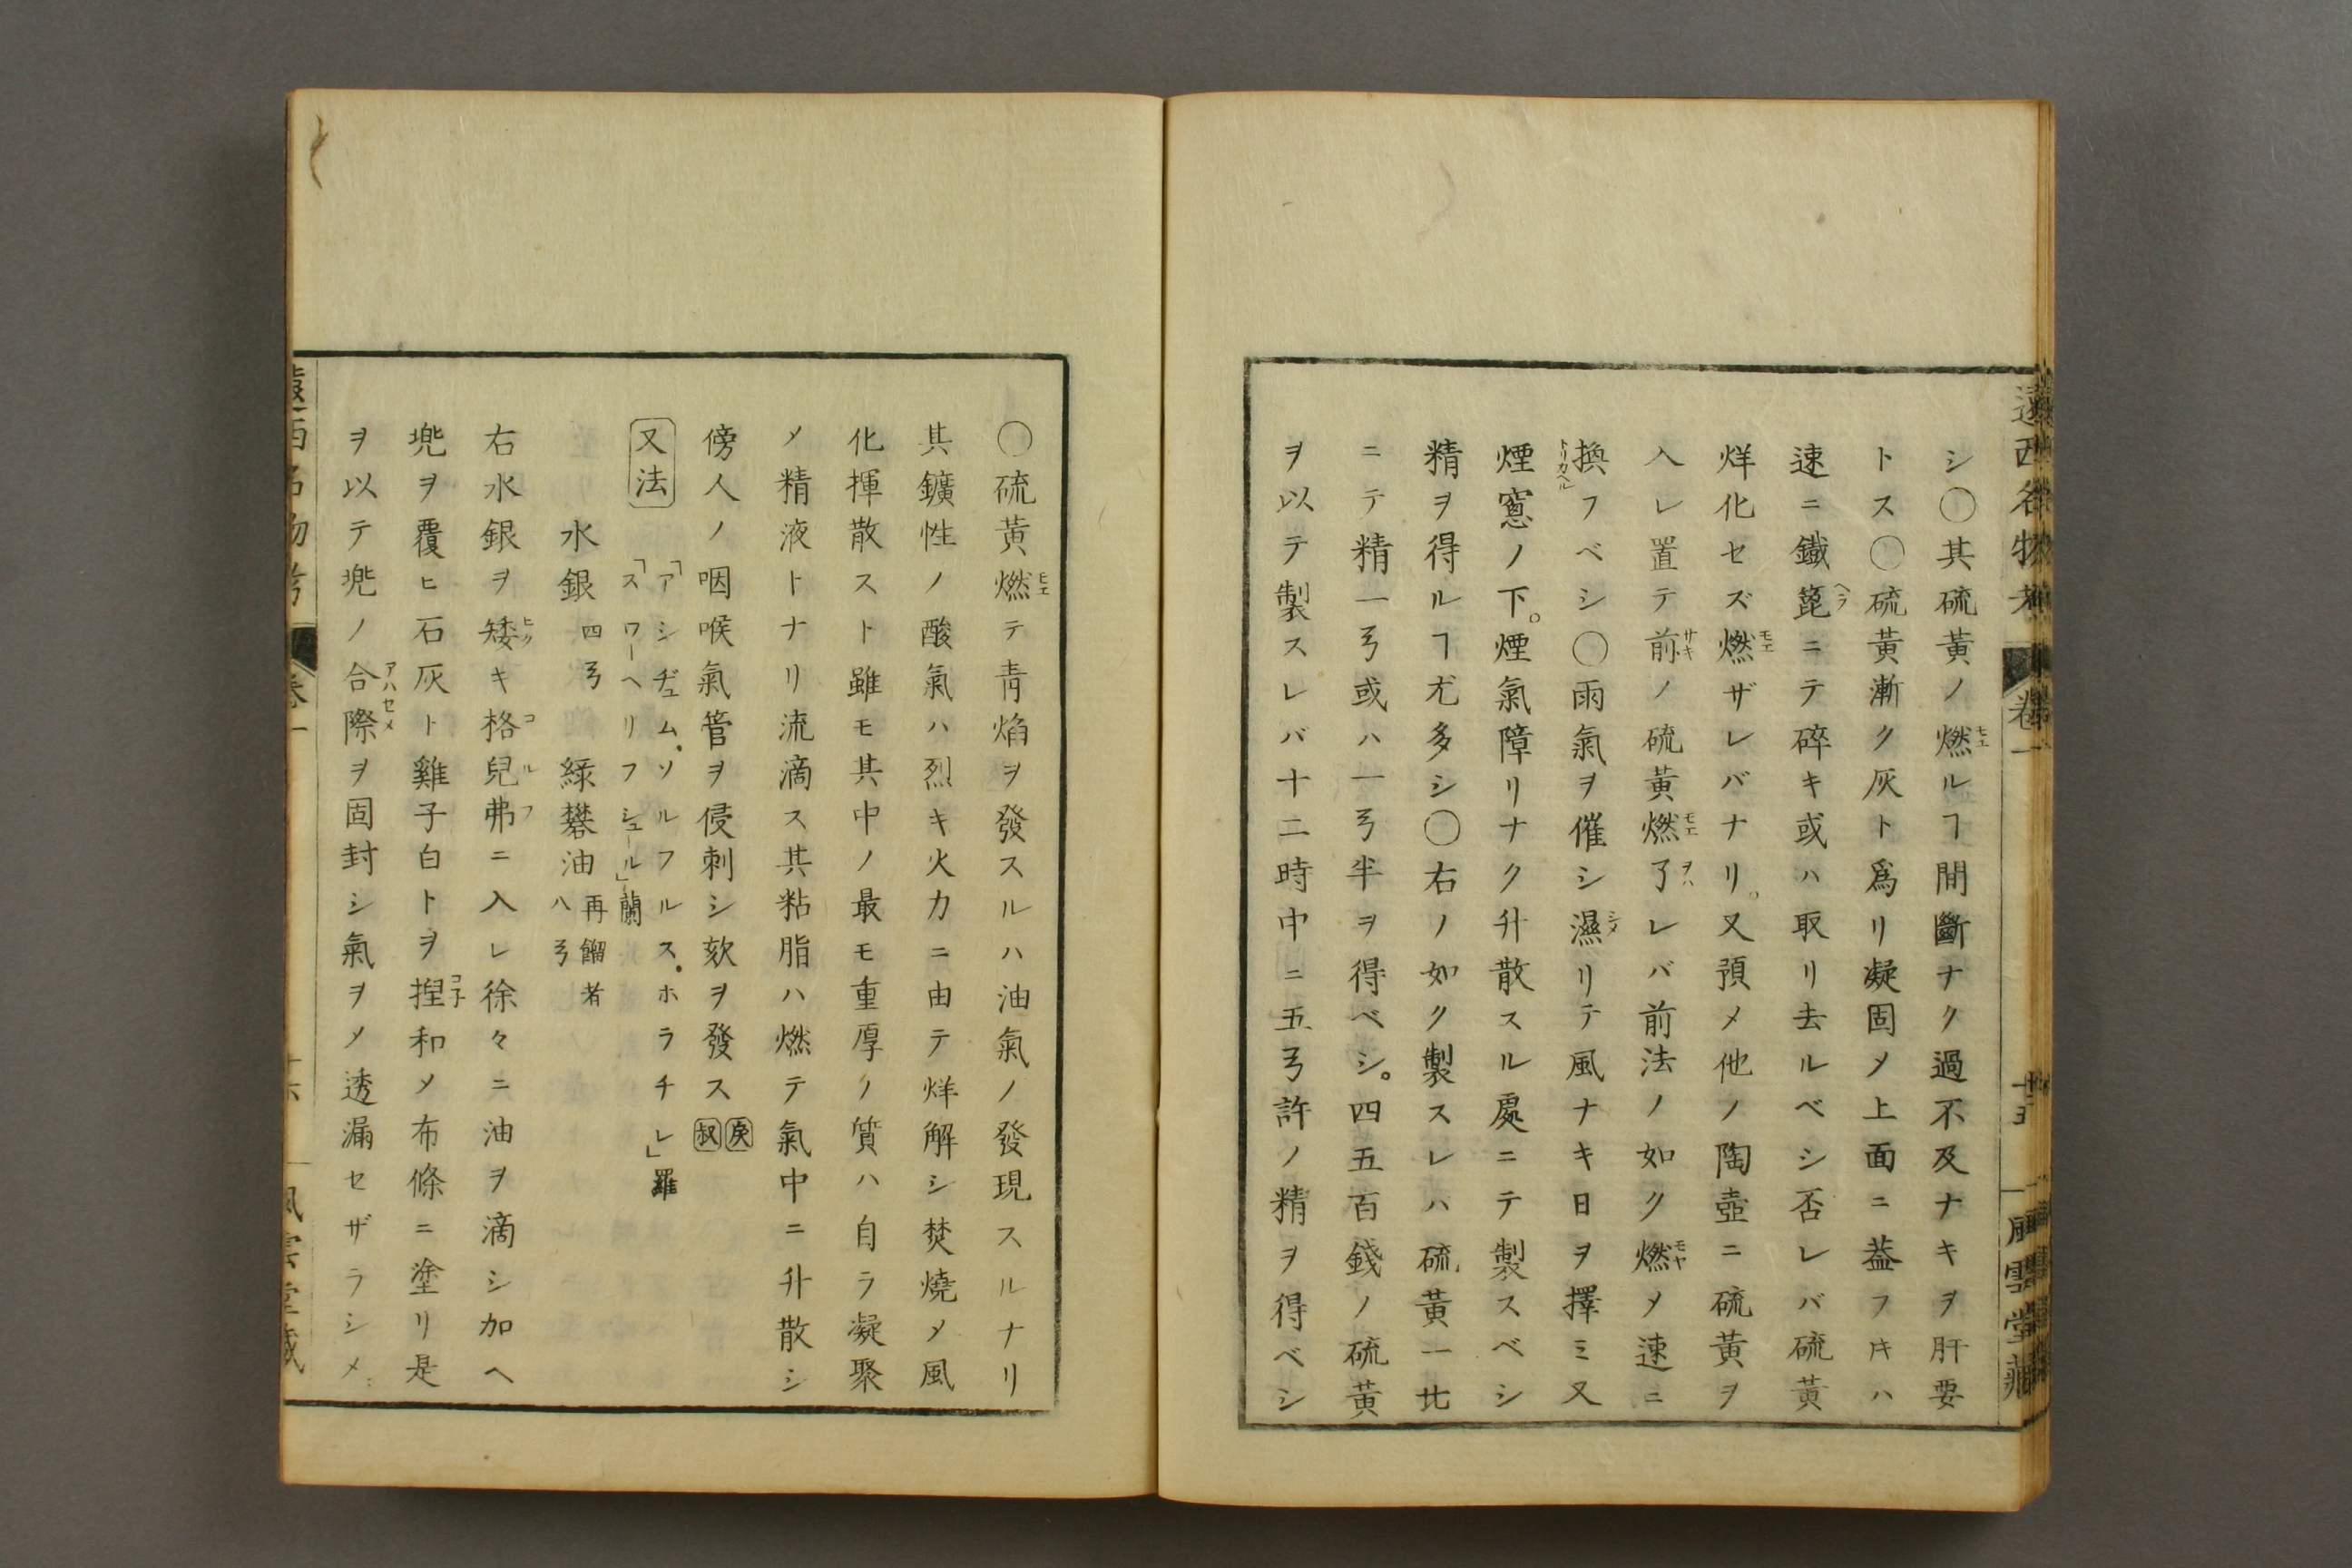 シ〇其硫黃ノ燃ルヿ間斷ナク過不及ナキヲ肝要
トス〇硫黃漸ク灰ト爲リ凝固メ上面ニ葢フ𪜈ハ
速ニ鐵篦ニテ碎キ或ハ取リ去ルベシ否レバ硫黃
烊化セズ燃ザレバナリ。又預メ他ノ陶壺ニ硫黃ヲ
入レ置テ前ノ硫黃燃了レバ前法ノ如ク燃メ速ニ
換フベシ〇雨氣ヲ催シ濕リテ風ナキ日ヲ擇ミ又
煙窻ノ下。煙氣障リナク升散スル處ニテ製スベシ
精ヲ得ルヿ尤多シ〇右ノ如ク製スレハ硫黃一
ニテ精一弓或ハ一弓半ヲ得ベシ。四五百錢ノ硫黃
ヲ以テ製スレバ十二時中ニ五弓許ノ精ヲ得ベシ
〇硫黃燃テ青焰ヲ發スルハ油氣ノ發現スルナリ
其鑛性ノ酸氣ハ烈キ火力ニ由テ烊解シ焚燒メ風
化揮散スト雖モ其中ノ最モ重厚ノ質ハ自ラ凝聚
メ精液トナリ流滴ス其粘脂ハ燃テ氣中ニ升散シ
傍人ノ咽喉氣管ヲ侵刺シ欬ヲ發ス
又法 「アシヂュム。ソルフルス。ホラチレ」羅
「スワーヘリフシュール」蘭
水銀四弓 緑礬油再餾者八弓
右水銀ヲ矮キ格兒弗ニ入レ徐々ニ油ヲ滴シ加ヘ
兠ヲ覆ヒ石灰ト雞子白トヲ揑和メ布條ニ塗リ是
ヲ以テ兠ノ合際ヲ固封シ氣ヲメ透漏セザラシメ